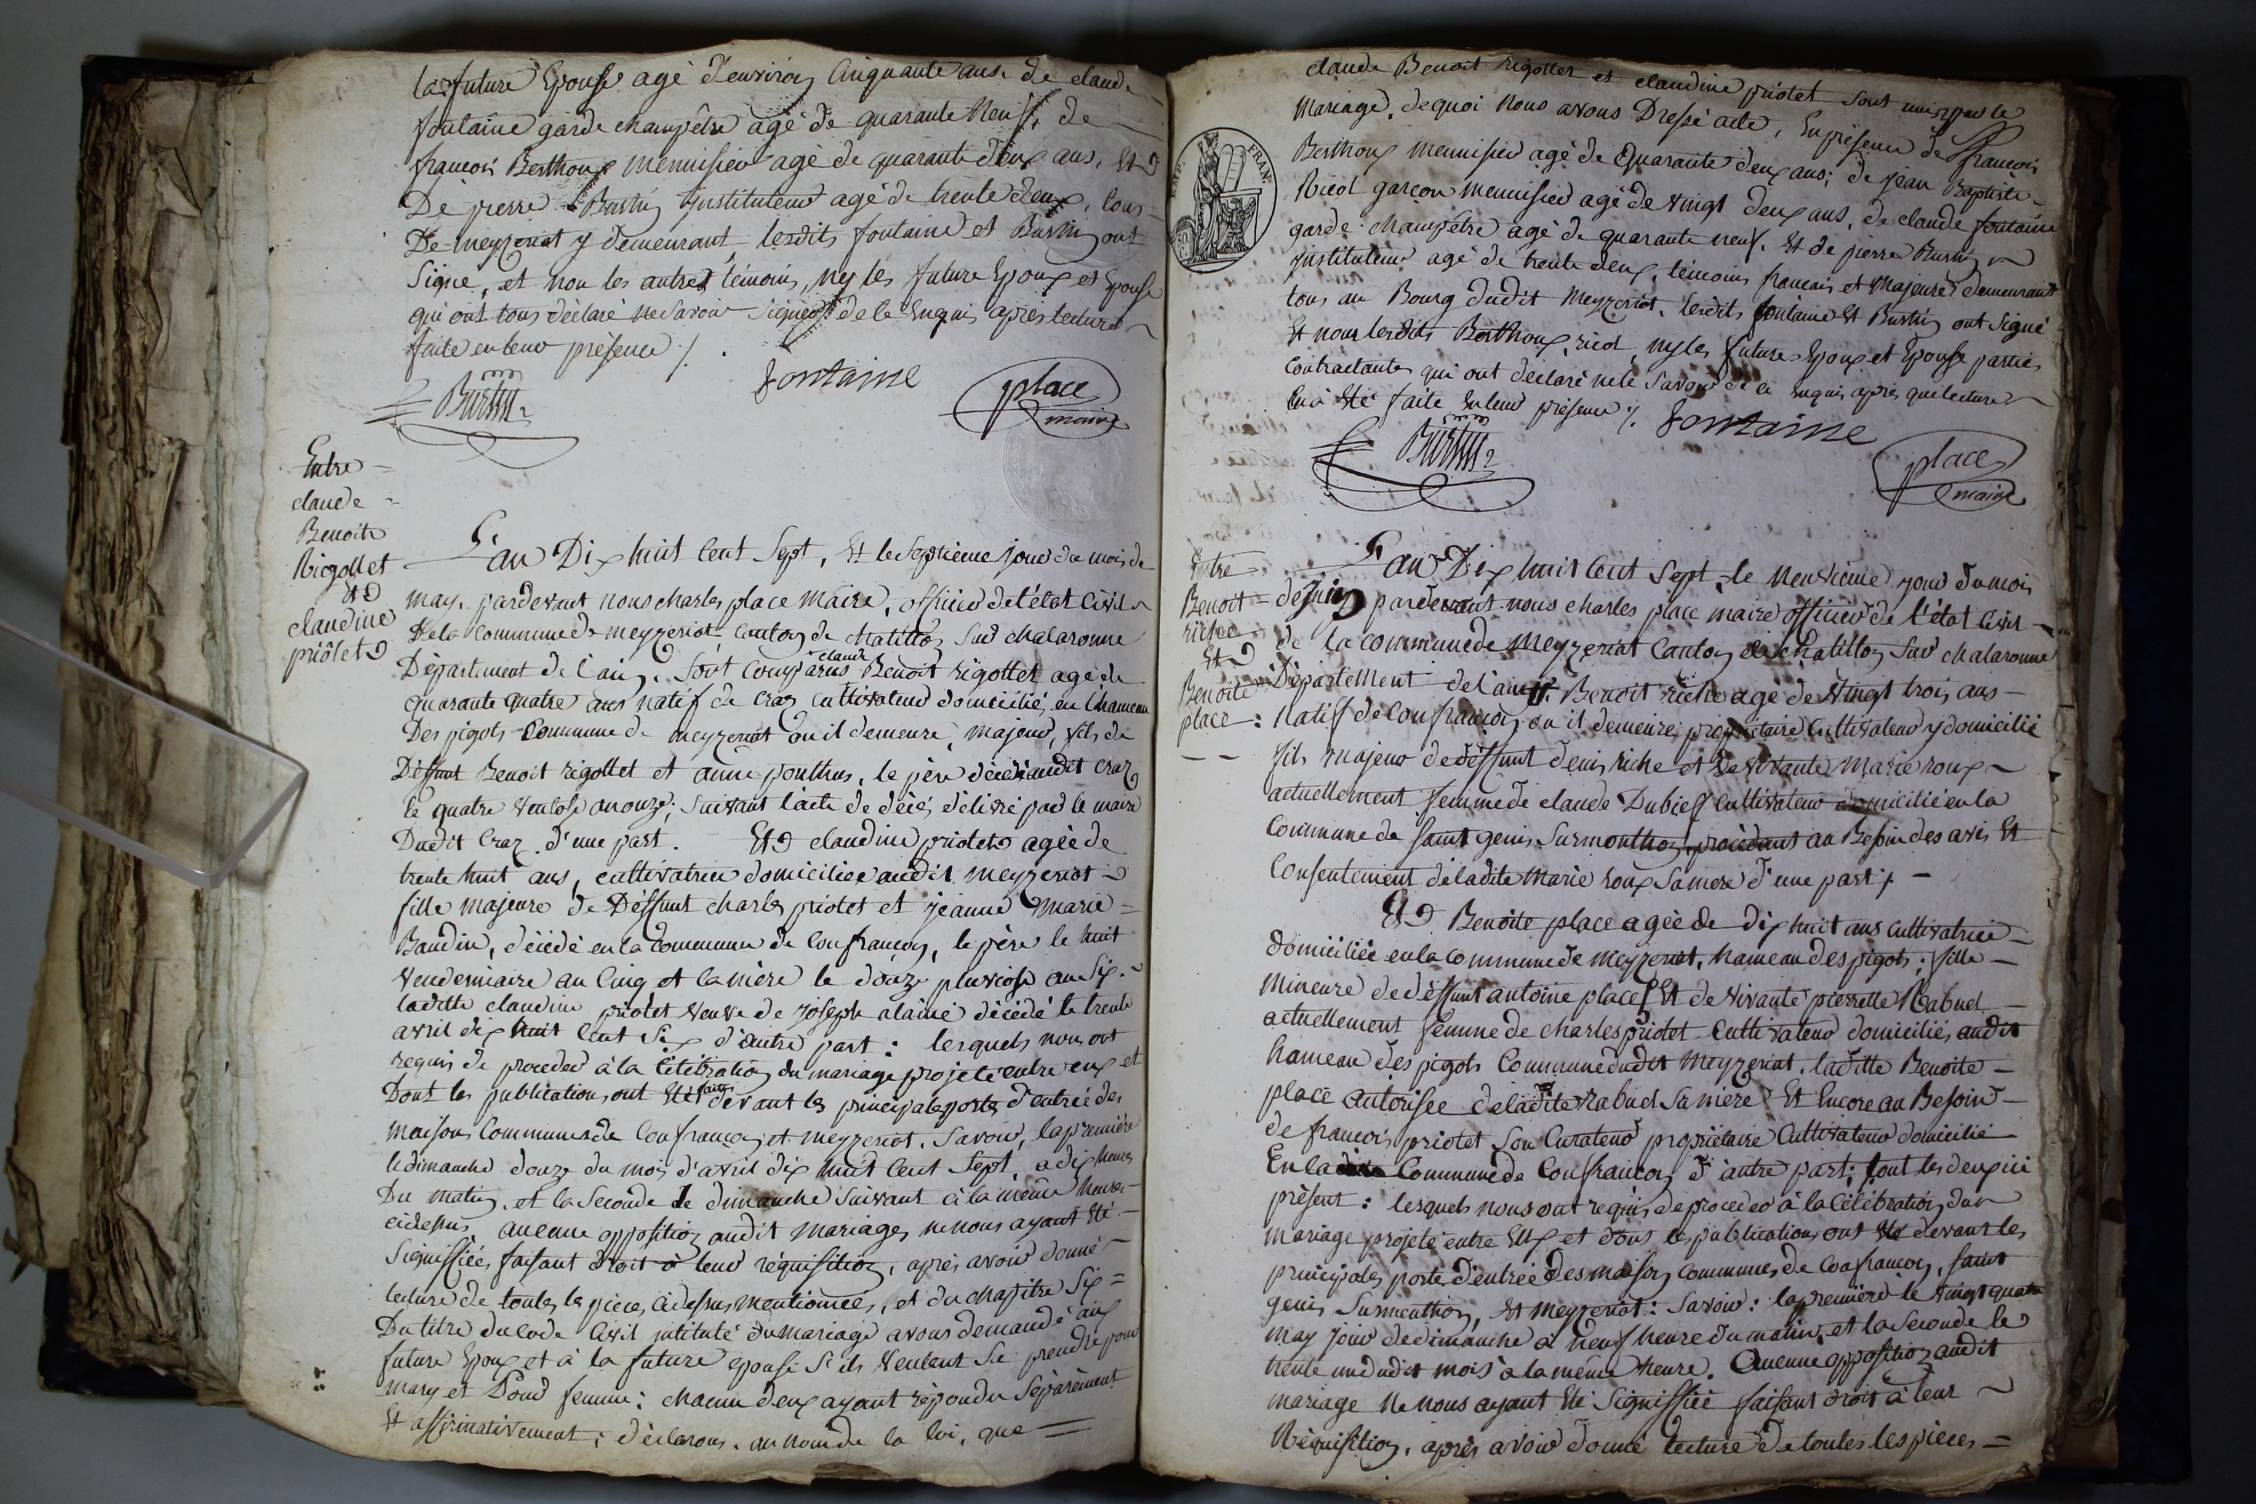 la future Epouse agé d'environ Cinquante ans. de claude
fontaine garde champêtre agé de quarante neuf, de
francois Berthoux menuisier agé de quarante deux ans, Et
De pierre Burtin jnstituteur agé de trente deux, tous
De meyzeriat y demeurant, lesdits fontaine et Burtin ont
Signé, et non les autres témoins, ny les future Epoux et Epouse
qui ont tous déclaré ne Savoir Signer de ce Enquis après lecture
faite en leur présence /.
Burtin
fontaine
place
maire
Entre
claude
Benoit
Ricgollet
Et
claudine
priôlet
L'an Dix huit Cent Sept, Et le Septième jour du mois de
may, pardevant nous charles place maire, officier de l'état Civil
De la Commune de meyzeriat Canton de chatillon Sur chalaronne
Département de l'ain. Sont Comparus claude Benoit rigollet agé de
quarante quatre ans natif de Craz cultivateur domicilié, en l'hameau
Des pigots Commune de meyzeriat ou il demeure, majeur, fils de
Deffunt Benoit rigollet et anne pouthus, le père décédé audit Craz
le quatre ventose an onze, suivant l'acte de décés, délivré par le maire
Dudit Craz d'une part. Et claudine priotet agée de
trente huit ans, cultivatrice domiciliée audit meyzeriat
fille majeure de Deffunt charles priotet et jeanne Marie
Baudin, décédé en la Commune de Confrançon, le père le huit
vendemiaire an Cinq et la mère le douze pluviose an Six.
laditte claudine priotet veuve de Joseph alainé décédé le trente
avril dix huit Cent Six d'autre part : lesquels nous ont
requis de proceder à la Célébration du mariage projeté entre eux et
Dont les publications ont Eté faites devant les principales portes d'entrée des
maisons Communes de Confrançon et meyzeriat. Savoir, la première
le dimanche douze du mois d'avril dix huit Cent Sept, a dix heures
Du matin, et la Seconde le dimanche Suivant à la même heure
cidessus, aucune opposition audit Mariage, ne nous ayant Eté
Signiffiée, faisant droit à leur réquisition, après avoir donné
lecture de toutes les pieces, Cidessus mentionnées, et du chapitre Six
Du titre du Code Civil jntitulé du Mariage avons demandé aux
future Epoux et à la future epouse S'ils veulent Se prendre pour
mary et Pour femme : chacun deux ayant répondu Séparément
Et affirmativement ; déclarons, au nom de la loi, que
claude Benoit rigollet et claudine priotet sont unis par le
Mariage, de quoi Nous avons Dressé acte, En présence de francois
Berthoux menuisier agé de Quarante deux ans ; de jean Baptiste
Ricol garçon menuisier agé de vingt deux ans, de claude fontaine
garde champêtre agé de quarante neuf. Et de pierre Burtin
jnstituteur agé de trente deux, témoins francais et Majeures demeurant
tous au Bourg dudit Meyzeriat, lesdits fontaine Et Burtin ont Signé
Et non lesdits Berthoux, ricol, ny les futures Epoux et Epouse parties
Contractantes qui ont déclaré ne le Savoir de ce Enquis après que lecture
En à Eté faite En leur présence /.
fontaine
Burtin
place
maire
Entre
Benoit
riche
Et
Benoite
place :
L'an Dix huit Cent Sept, le Neuvième jour du mois
de juin pardevant nous charles place maire officier de l'état Civil
de la commune de Meyzeriat Canton de chatillon Sur chalaronne
Département de l'ain. Benoit riche agé de vingt trois ans
natif de Confrançon ou il demeure, propriétaire Cultivateur y domicilié
fils majeur de deffunt denis riche et de vivante Marie roux
actuellement femme de claude Dubieff Cultivateur domicilié en la
Commune de Saint genis Surmonthon, procédant au Besoin des avis Et
Consentement de ladite Marie roux Sa mere d'une part /.
Et Benoite place agée de dix huit ans cultivatrice
domiciliée en la commune de Meyzeriat, hameau des pigots ; fille
Mineure de deffunt antoine place Et de vivante pierrette Rabuel
actuellement femme de charles priotet Cultivateur domicilié, audit
hameau des pigots Commune dudit Meyzeriat, laditte Benoite
place autorisée de ladite rabuel Sa mere Et Encore au Besoin
de francois priotet Son Curateur propriétaire Cultivateur domicilié
En la Commune de Confrançon d'autre part ; tout les deux ici
présent : lesquels nous ont requis de proceder à la Célébration du
mariage projeté entre Eux et dont les publications ont Eté devant les
principales portes d'entrée des maison Communes, de Confrancon, Saint
genis Surmenthon, Et Meyzeriat : Savoir : la première le vingt quatre
may jour de dimanche à neuf heure du matin, et la Seconde le
trente un dudit mois à la même heure. Aucune opposition audit
mariage Ne nous ayant Eté Signiffiée faisant droit à leur
Réquisition, après avoir donné lecture de toutes les pieces